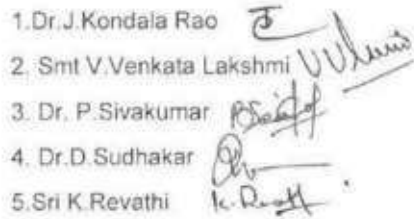 1.Dr.J.Kondala Rao
2. Smt V.Venkata Lakshmi
3. Dr. P.Sivakumar
4. Dr.D.Sudhakar
5.Sri K.Revathi